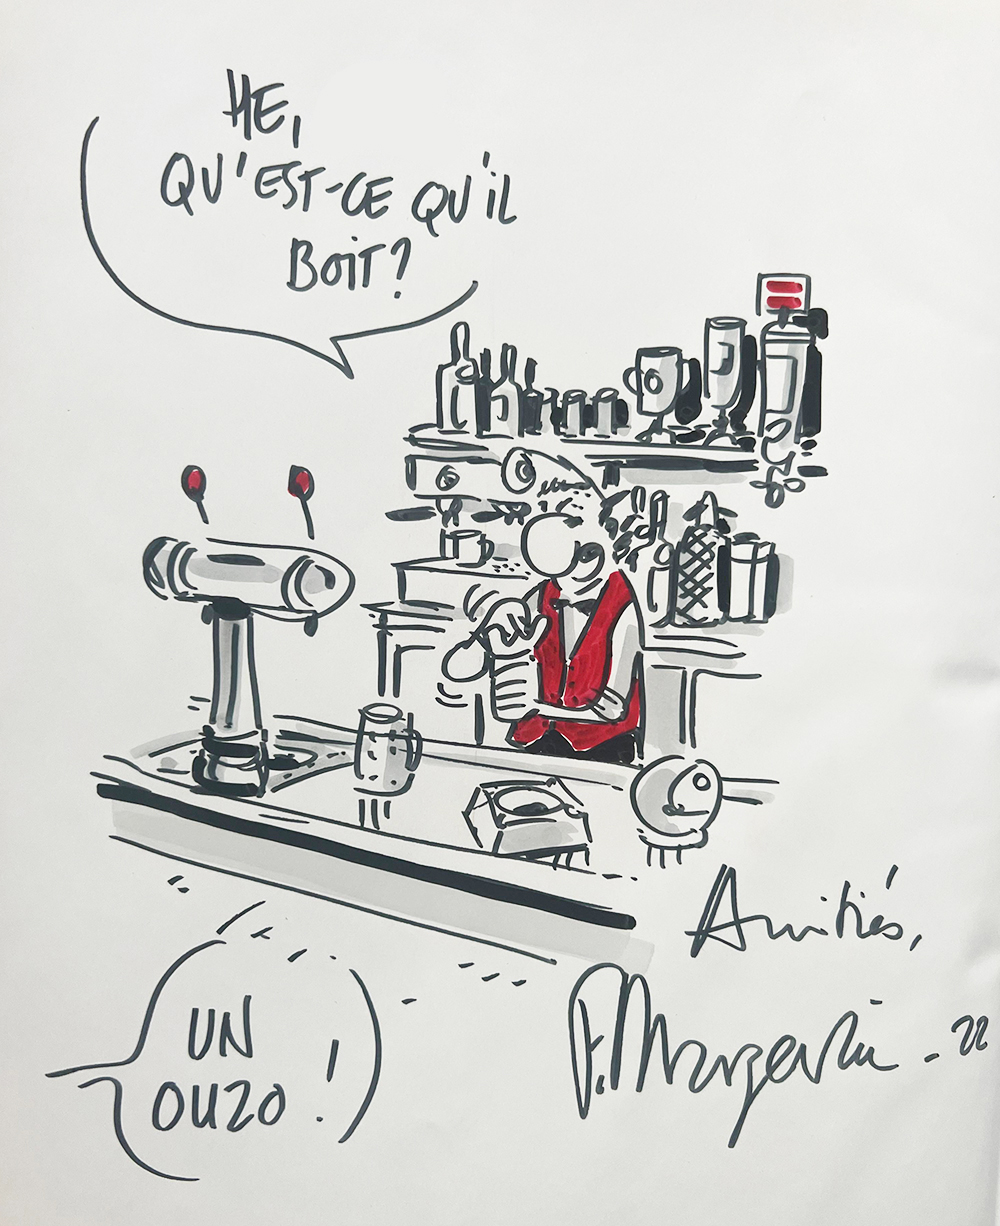 HE,
QU'EST-CE QU'IL
BOIT?
UN
OUZO !
Amitiés,
F. Margerin - 22